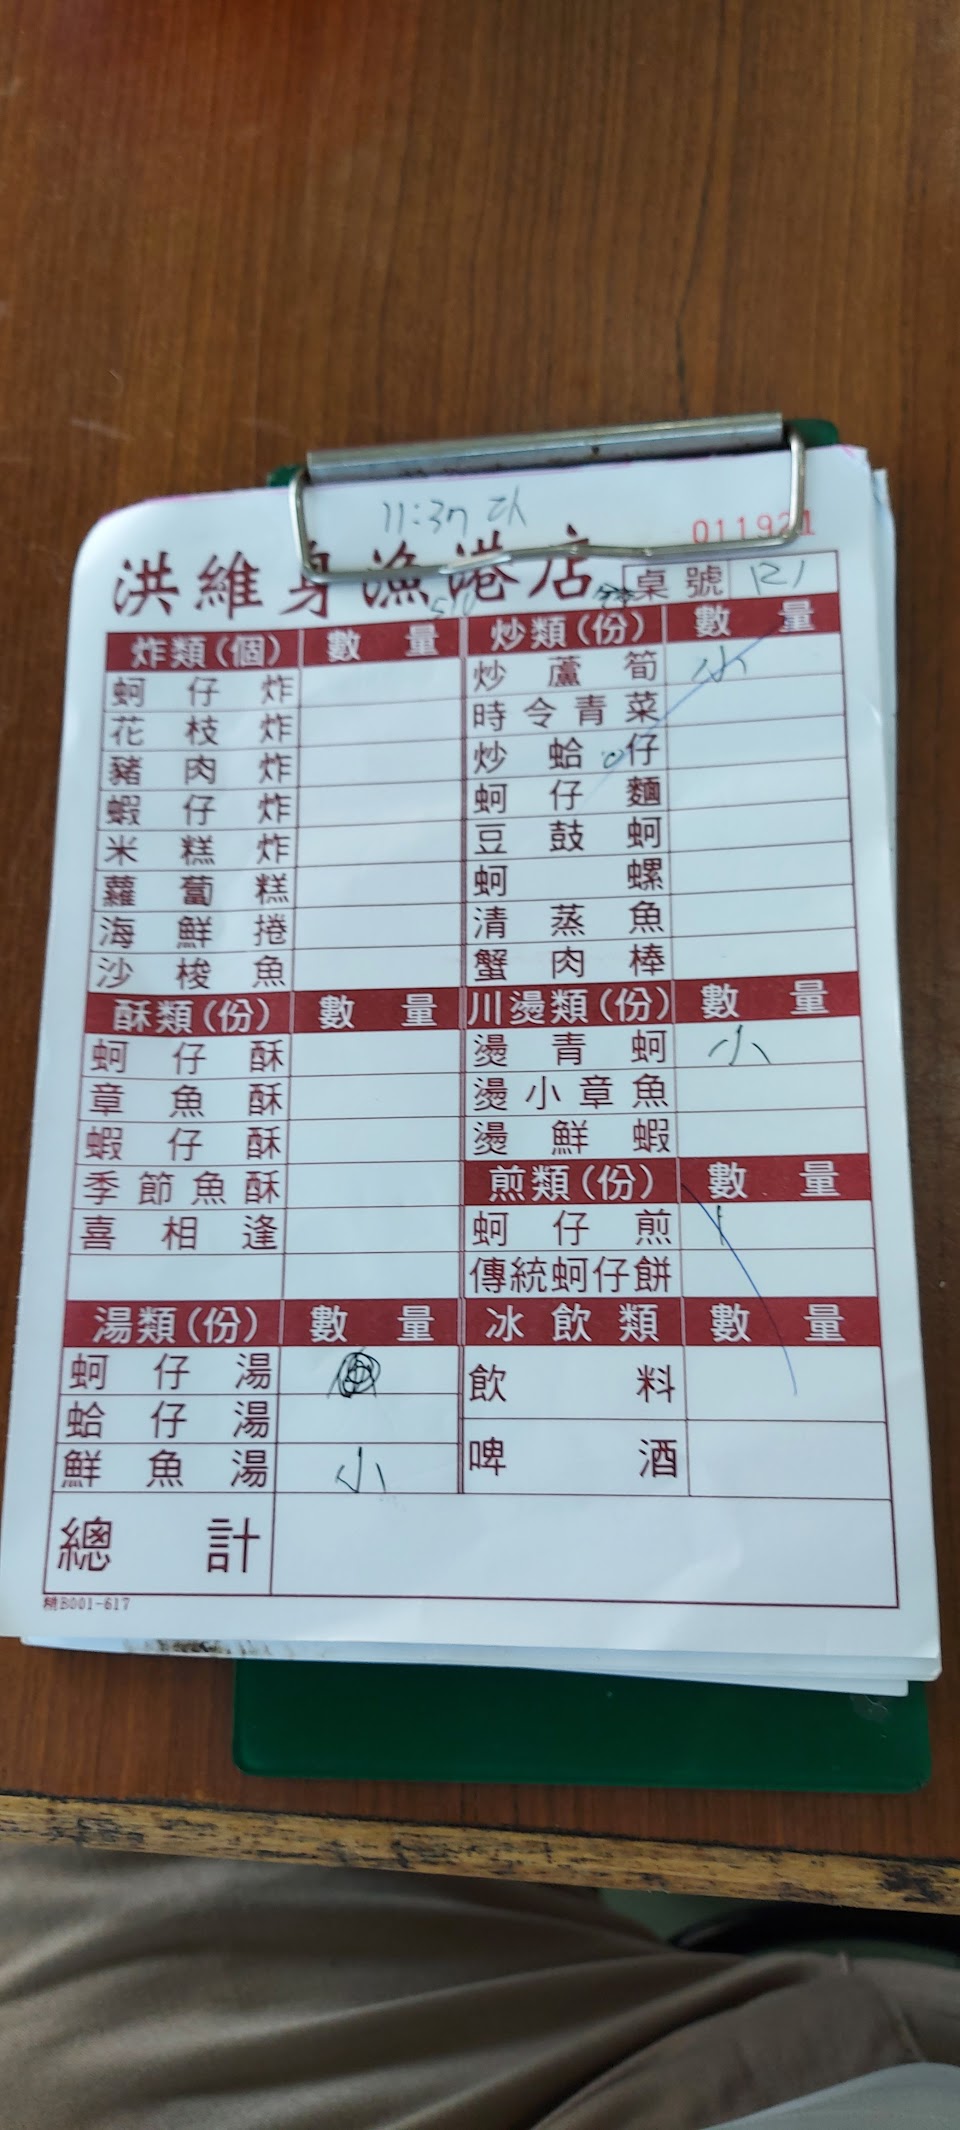 11:37
011921
洪維身漁港店
510
桌號 121
炸類(個) 數量 炒類(份) 數量
蚵仔炸 炒蘆筍 小
花枝炸 時令青菜
豬肉炸 炒蛤仔
蝦仔炸 蚵仔麵
米糕炸 豆鼓蚵
蘿蔔糕 蚵螺
海鮮捲 清蒸魚
沙梭魚 蟹肉棒
酥類(份) 數量 川燙類(份) 數量
蚵仔酥 燙青蚵 小
章魚酥 燙小章魚
蝦仔酥 燙鮮蝦
季節魚酥 煎類(份) 數量
喜相逢 蚵仔煎 1
傳統蚵仔餅
湯類(份) 數量 冰飲類 數量
蚵仔湯 飲料
蛤仔湯
鮮魚湯 小 啤酒
總計
精B001-617